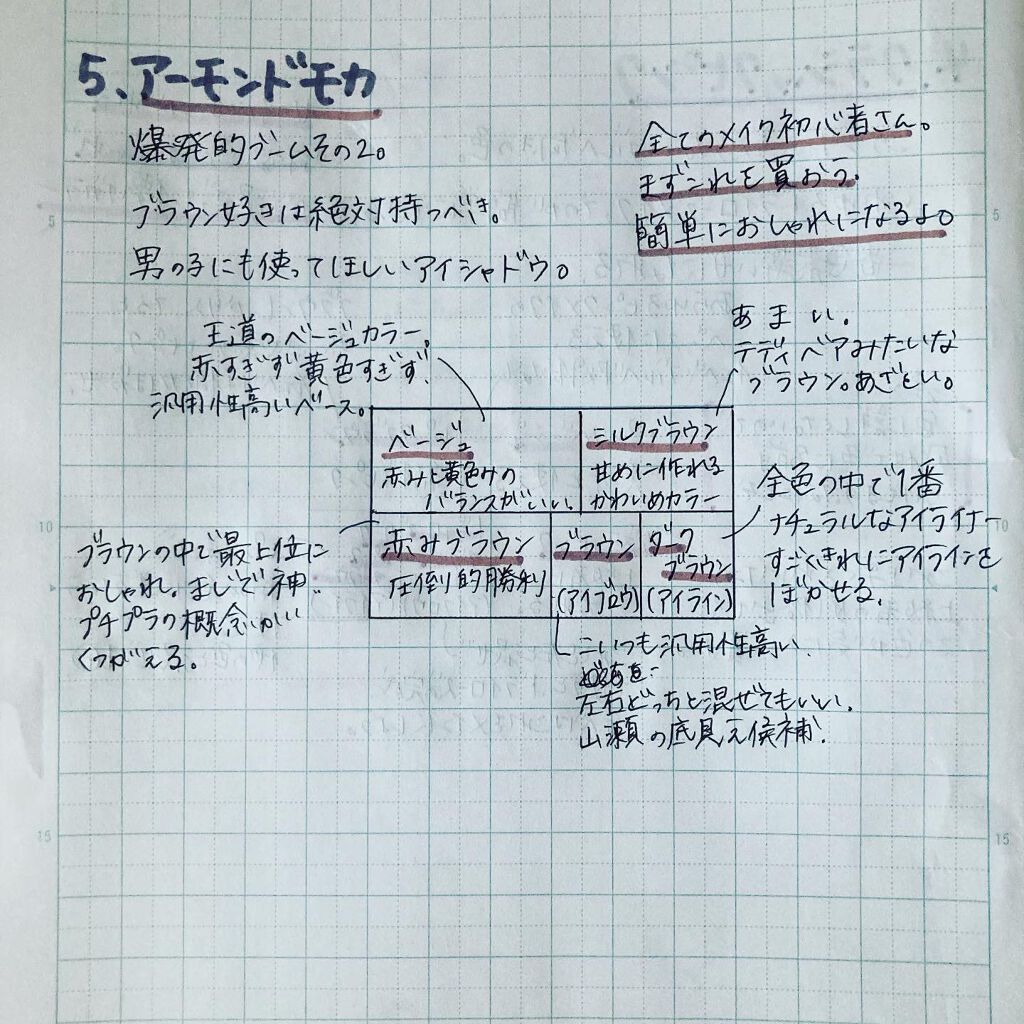 5、アーモンドモカ
爆発的ブームその2。
ブラウン好きは絶対持つべき。
男の子にも使ってほしいアイシャドウ。
全てのメイク初心者さん。
まずこれを買おう。
簡単におしゃれになるよ。
王道のベージュカラー。
赤すぎず、黄色すぎず、
汎用性高いベース。
あまい。
テディベアみたいな
ブラウン。あざとい。
ベージュ
赤みと黄色みの
バランスがいい。
ミルクブラウン
甘めに作れる
かわいめカラー
全色の中で1番
ナチュラルなアイライナー
すごくきれいにアイラインを
ぼかせる。
ブラウンの中で最上位に
おしゃれ。まじで神。
プチプラの概念が
くつがえる。
赤みブラウン
圧倒的勝利
ブラウン
(アイブロウ)
ダーク
ブラウン
(アイライン)
こいつも汎用性高い。
左右どっちと混ぜてもいい。
山瀬の底見え候補!
5
5
10
10
15
15